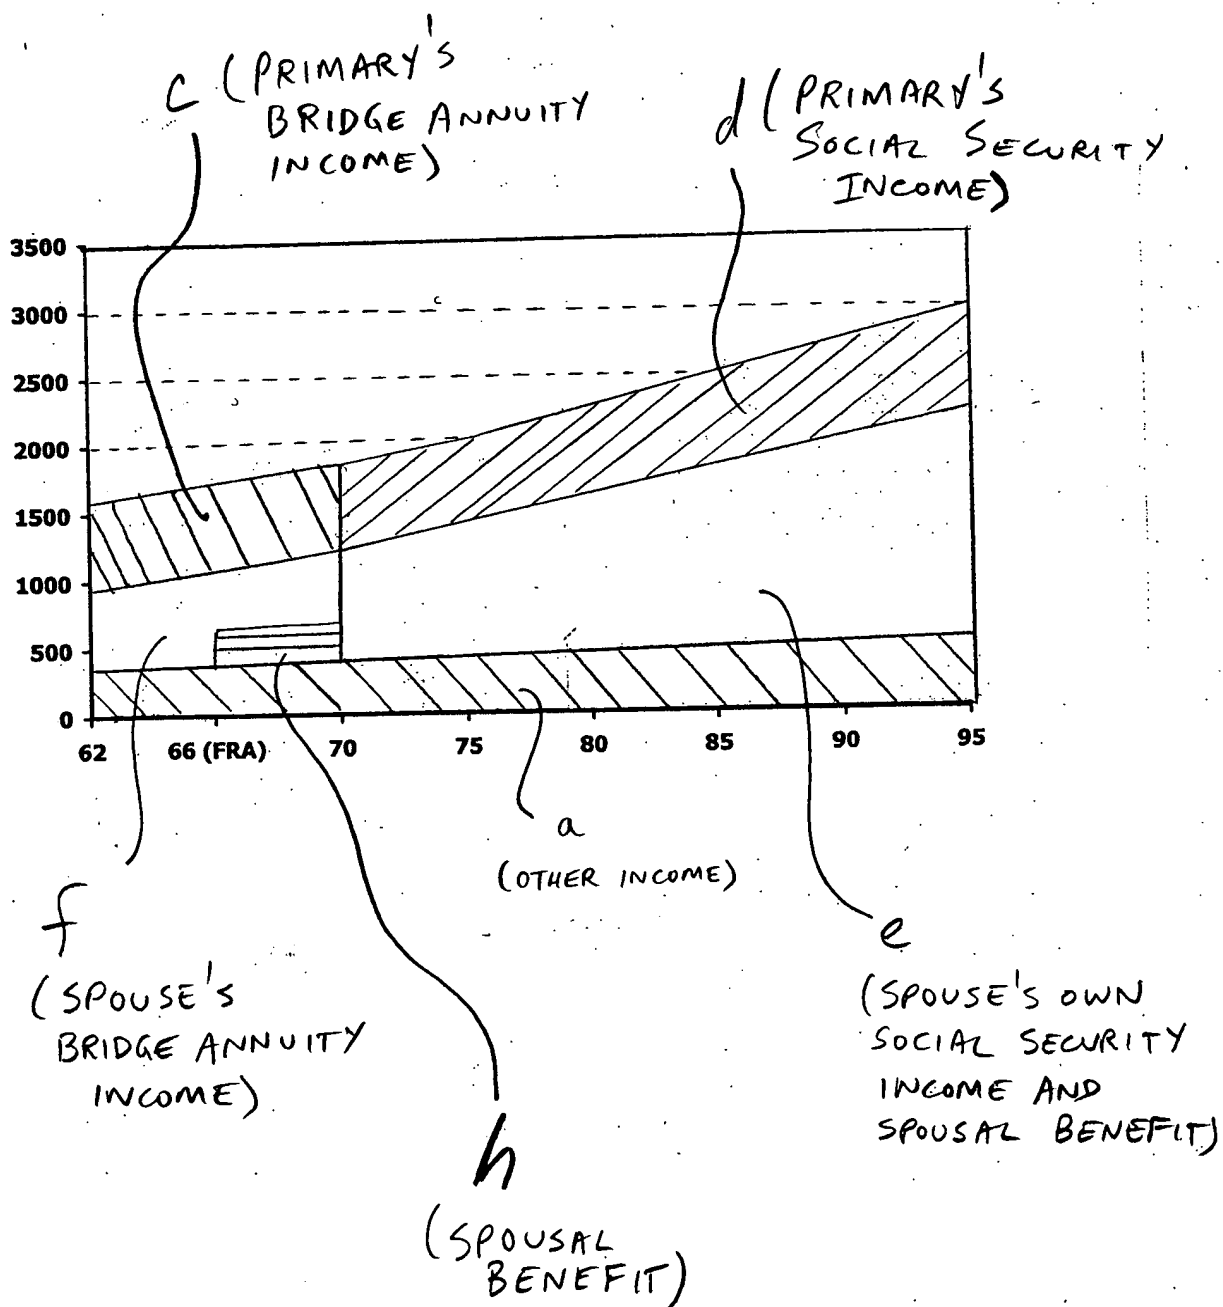 c (PRIMARY'S
BRIDGE ANNUITY
INCOME)
d (PRIMARY'S
SOCIAL SECURITY
INCOME)
3500
3000
2500
2000
1500
1000
500
0
62 66 (FRA) 70 75 80 85 90 95
a
(OTHER INCOME)
f
(SPOUSE'S
BRIDGE ANNUITY
INCOME)
e
(SPOUSE'S OWN
SOCIAL SECURITY
INCOME AND
SPOUSAL BENEFIT)
h
(SPOUSAL
BENEFIT)